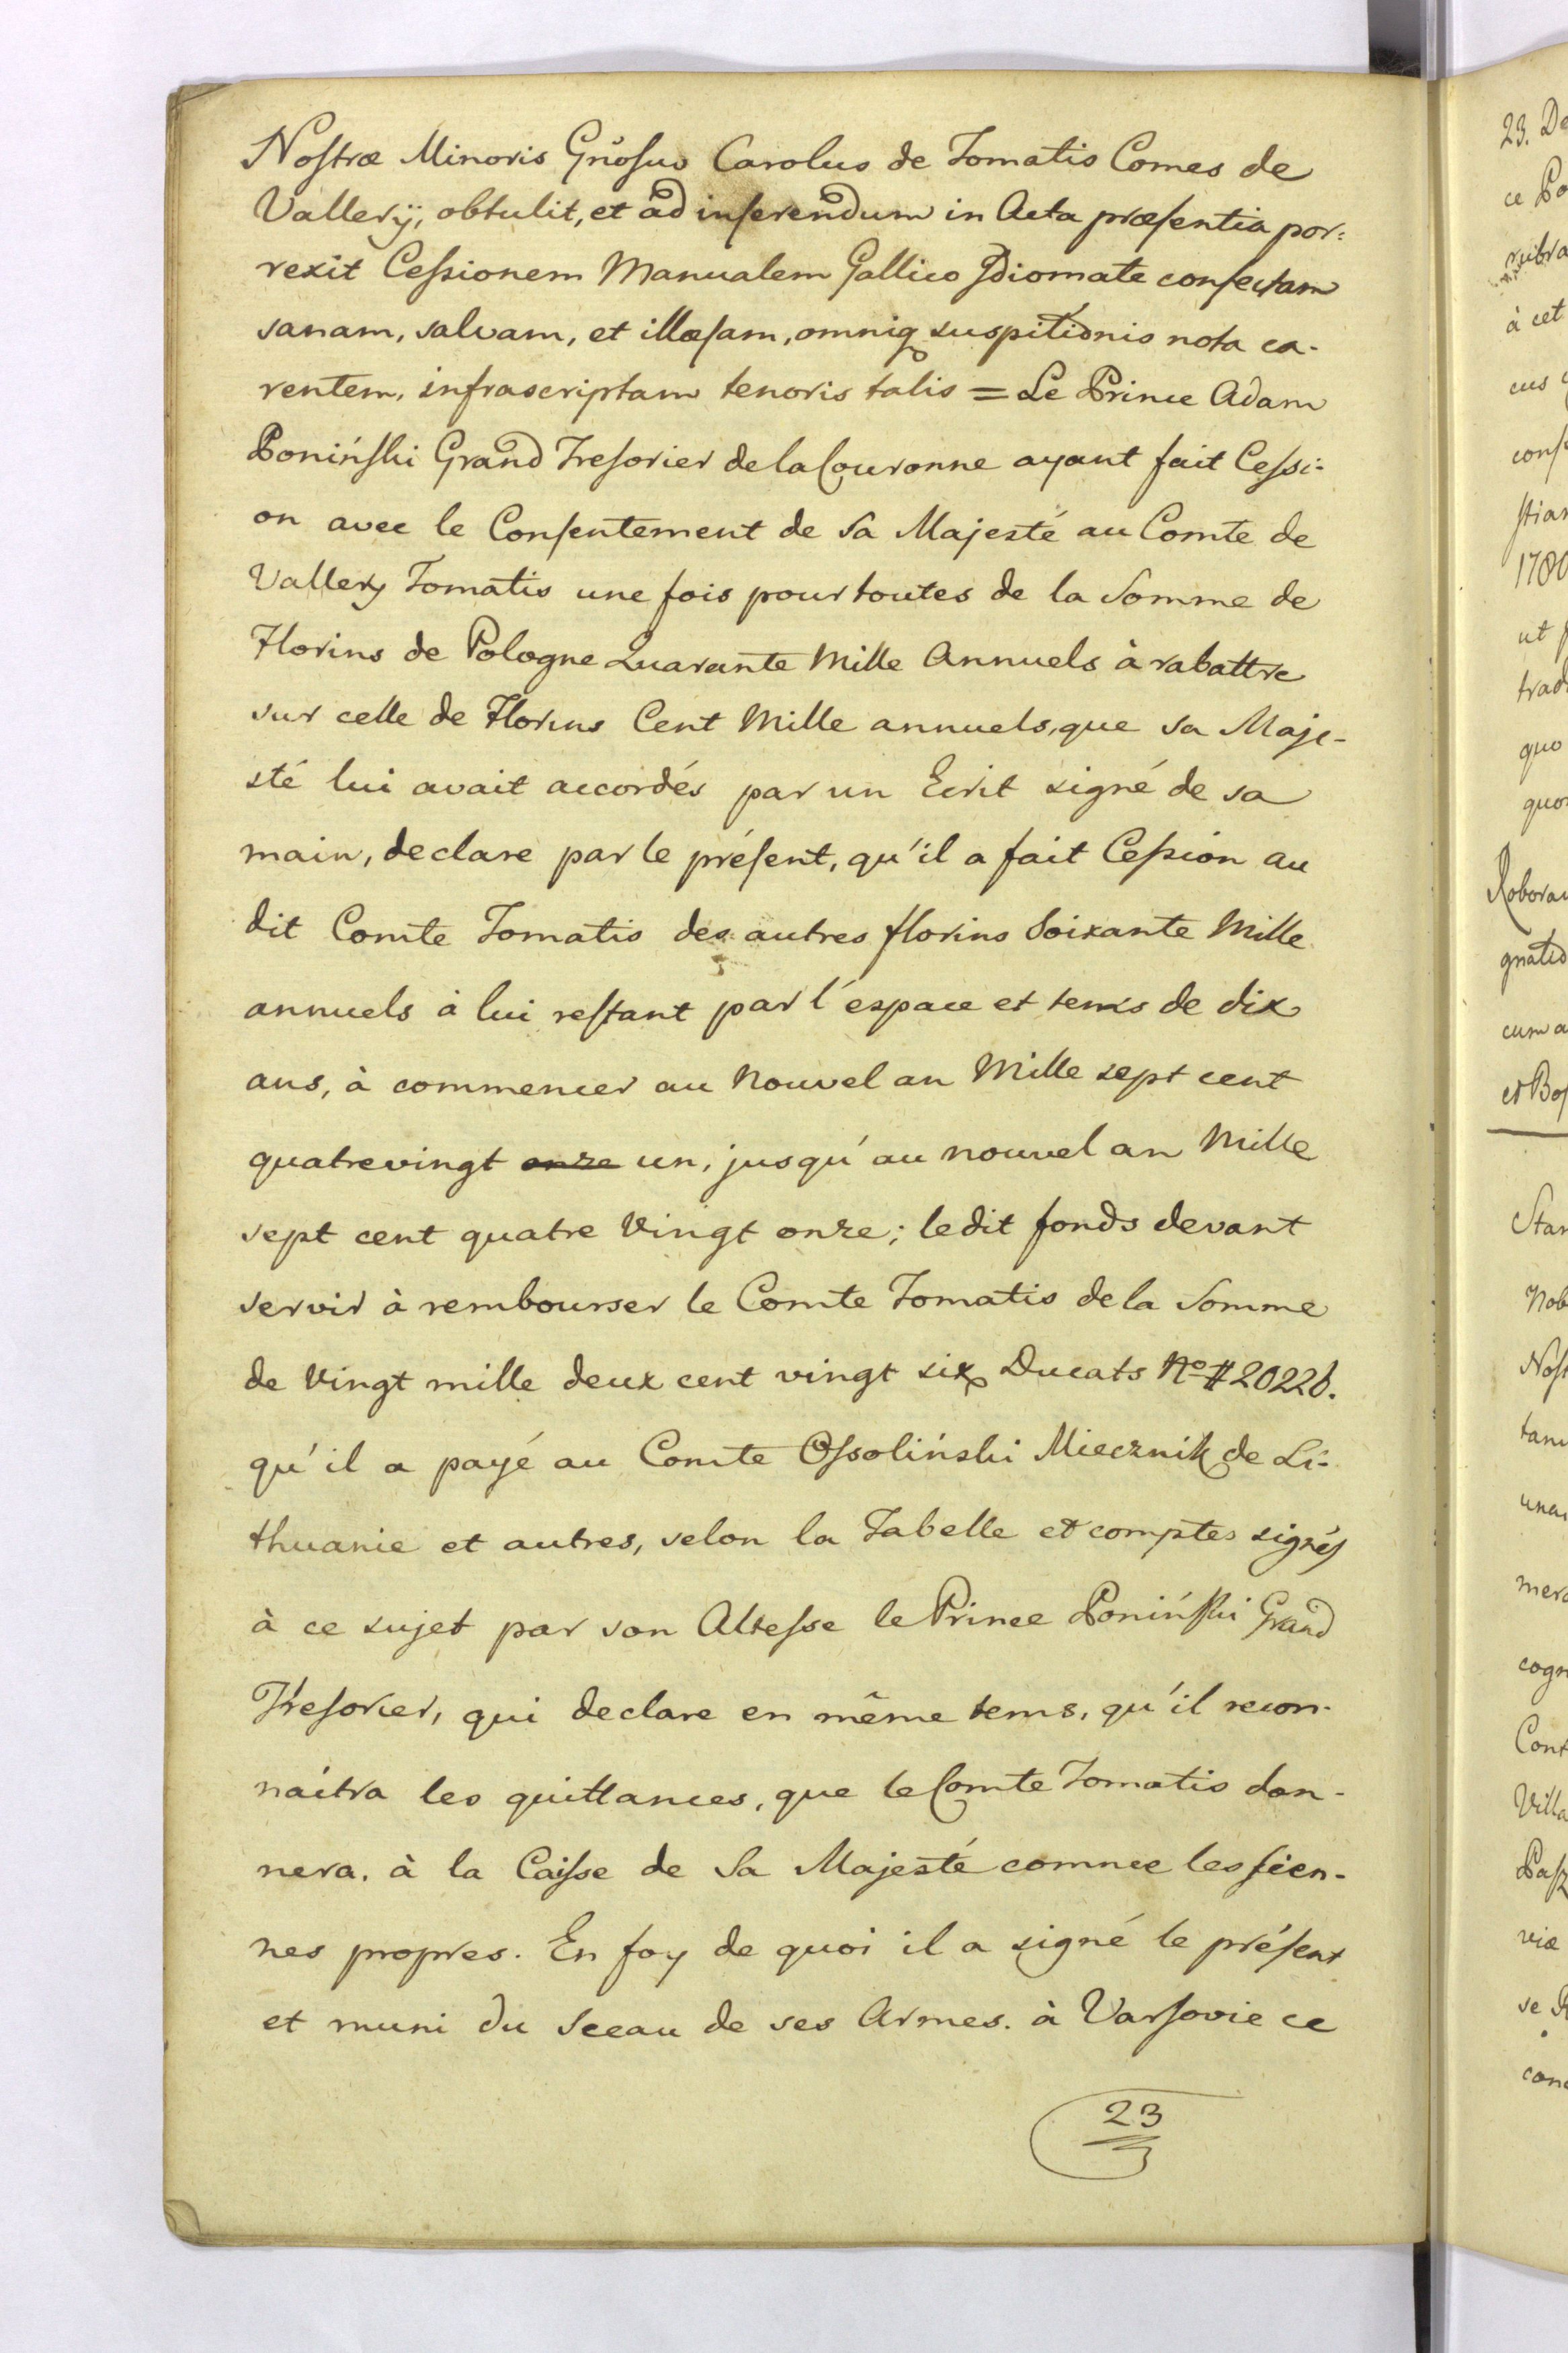 Nostræ Minoris Gnosus Carolus de Tomatis Comes de
Vallerÿ, obtulit, et ad inserendum in Acta præsentia por:
rexit Cessionem Manualem Gallico Idiomate confectam
sanam, salvam, et illæsam, omniq suspitionis nota ca-
rentem, infrascriptam tenoris talis = Le Prince Adam
Poniński Grand Tresorier de la Couronne ayant fait Cessi-
on avec le Consentement de Sa Majesté au Comte de
Vallery Tomatis une fois pour toutes de la Somme de
Florins de Pologne Quarante Mille Annuels à rabattre
sur celle de Florins Cent Mille annuels, que sa Maje-
sté lui avait accordés par un Ecrit signé de sa
main, declare par le présent, qu'il a fait Cession au
dit Comte Tomatis des autres florins Soixante Mille
annuels à lui restant par l'espace et tems de dix
ans, à commencer au Nouvel an Mille sept cent
quatrevingt onze un, jusqu'au nouvel an Mille
sept cent quatre Vingt onze; ledit fonds devant
servir à rembourser le Comte Tomatis de la Somme
de Vingt mille deux cent vingt six Ducats No # 20226.
qu'il a payé au Comte Ossoliński Miecznik de Li-
thuanie et autres, selon la Tabelle et comptes signés
à ce sujet par son Altesse le Prince Poniński Grand
Trésorier, qui declare en même tems, qu'il recon-
naitra les quittances, que le Comte Tomatis don-
nera, à la Caisse de Sa Majesté comme les sien-
nes propres. En foy de quoi il a signé le présent
et muni du Sceau de ses Armes. à Varsovie ce
23
23. De
ce Po
à cet
cus
conf
stian
1780
ut
trad
quo
quo
Roboran
gnatio
cum a
et Bo
Stan
Nob
Nost
tam
una
merc
cogn
Cont
Villa
Pasz
viæ
se R
conc